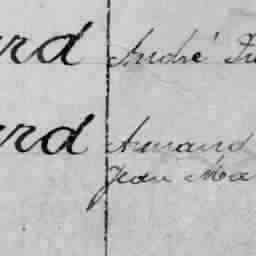 rd André
rd Armand
Jean